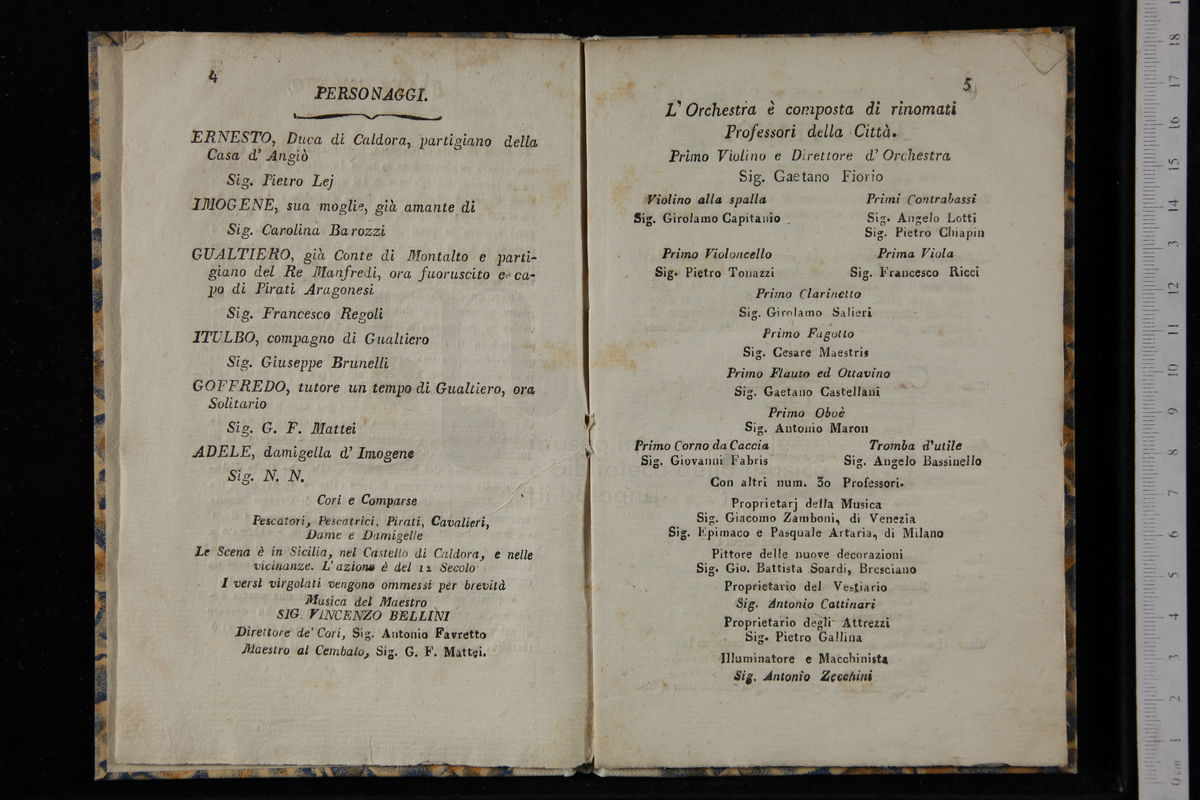 4
PERSONAGGI.
ERNESTO, Duca di Caldora, partigiano della
Casa d' Angiò
Sig. Pietro Lej
IMOGENE, sua moglie, già amante di
Sig. Carolina Barozzi
GUALTIERO, già Conte di Montalto e parti-
giano del Re Manfredi, ora fuoruscito e ca-
po di Pirati Aragonesi
Sig. Francesco Regoli
ITULBO, compagno di Gualtiero
Sig. Giuseppe Brunelli
GOFFREDO, tutore un tempo di Gualtiero, ora
Solitario
Sig. G. F. Mattei
ADELE, damigella d' Imogene
Sig. N. N.
Cori e Comparse
Pescatori, Pescatrici, Pirati, Cavalieri,
Dame e Damigelle
Le Scena è in Sicilia, nel Castello di Caldora, e nelle
vicinanze. L' azione è del 12 Secolo
I versi virgolati vengono ommessi per brevità
Musica del Maestro
SIG. VINCENZO BELLINI
Direttore de' Cori, Sig. Antonio Favretto
Maestro al Cembalo, Sig. G. F. Mattei.
5
L' Orchestra è composta di rinomati
Professori della Città.
Primo Violino e Direttore d' Orchestra
Sig. Gaetano Fiorio
Violino alla spalla
Sig. Girolamo Capitanio
Primi Contrabassi
Sig. Angelo Lotti
Sig. Pietro Chiapin
Primo Violoncello
Sig. Pietro Tonazzi
Prima Viola
Sig. Francesco Ricci
Primo Clarinetto
Sig. Girolamo Salieri
Primo Fagotto
Sig. Cesare Maestris
Primo Flauto ed Ottavino
Sig. Gaetano Castellani
Primo Oboè
Sig. Antonio Maron
Primo Corno da Caccia
Sig. Giovanni Fabris
Tromba d'utile
Sig. Angelo Bassinello
Con altri num. 30 Professori.
Proprietarj della Musica
Sig. Giacomo Zamboni, di Venezia
Sig. Epimaco e Pasquale Artaria, di Milano
Pittore delle nuove decorazioni
Sig. Gio. Battista Soardi, Bresciano
Proprietario del Vestiario
Sig. Antonio Cattinari
Proprietario degli Attrezzi
Sig. Pietro Gallina
Illuminatore e Macchinista
Sig. Antonio Zecchini
0 cm 1 2 3 4 5 6 7 8 9 10 11 12 13 14 15 16 17 18